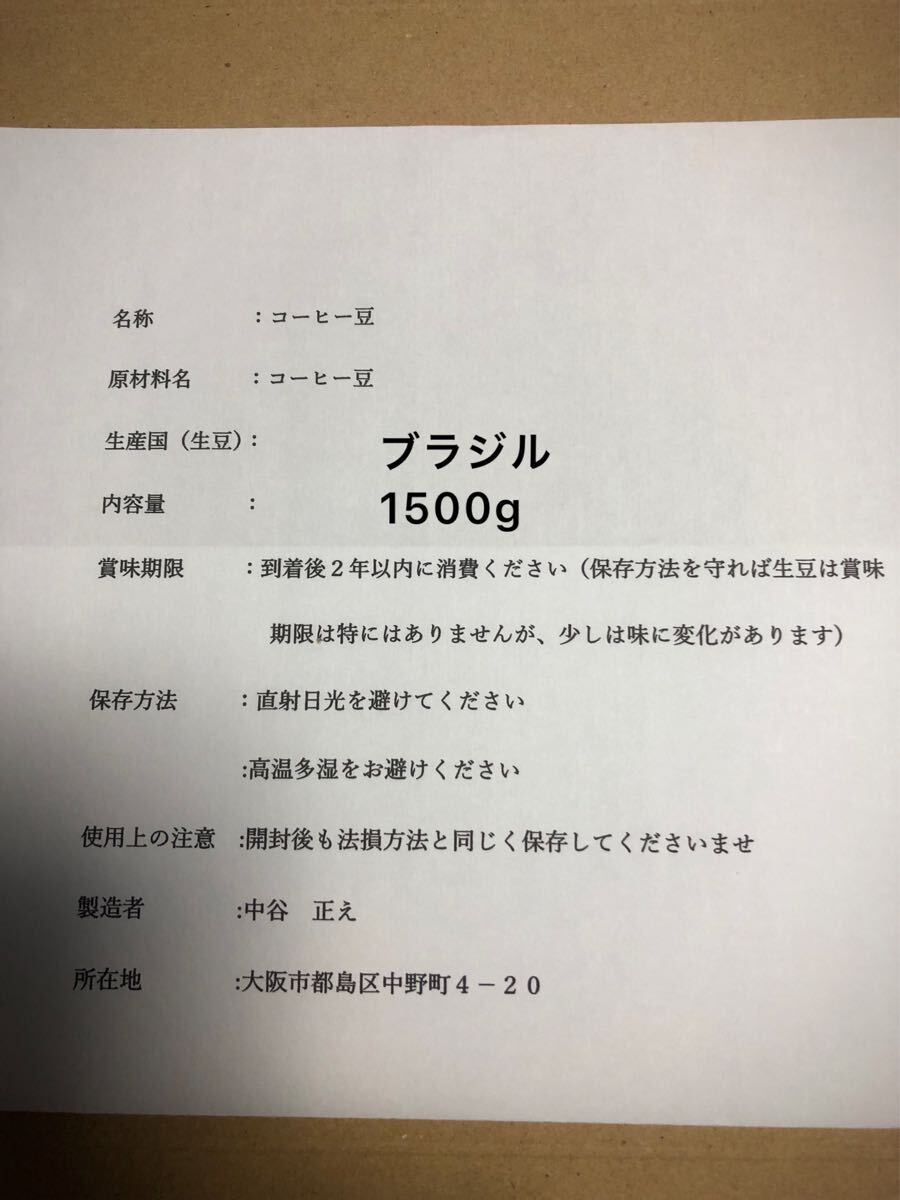 名称　：コーヒー豆
原材料名　：コーヒー豆
生産国（生豆）：　ブラジル
内容量　：　1500g
賞味期限　：到着後２年以内に消費ください（保存方法を守れば生豆は賞味
期限は特にはありませんが、少しは味に変化があります）
保存方法　：直射日光を避けてください
:高温多湿をお避けください
使用上の注意　:開封後も法損方法と同じく保存してくださいませ
製造者　:中谷　正え
所在地　:大阪市都島区中野町４－２０